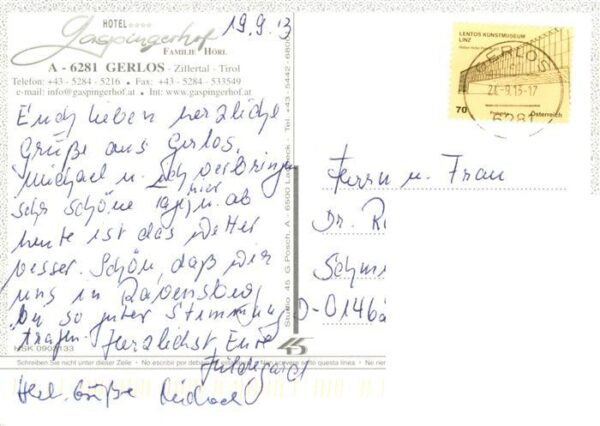 HOTEL****
19.9.13
Gaspingerhof
FAMILIE HÖRL
A - 6281 GERLOS - Zillertal - Tirol
Telefon: +43 - 5284 - 5216 • Fax: +43 - 5284 - 533549
e-mail: info@gaspingerhof.at • Int: www.gaspingerhof.at
Euch lieben herzliche
Grüße aus Gerlos,
Michael u. ich verbringen
hier
sehr schöne Tage, u. ab
heute ist das Wetter
besser. Schön, daß wir
uns in Ravensburg
in so guter Stimmung
trafen. Herzlichst Eure
Hildegard
HSK 0902133
Schreiben Sie nicht unter dieser Zeile - No escribir por debajo
Herl. Grüße Michael
Studio 45 G.Posch, A - 6500 Landeck Tel. +43 - 5442 -
45
LENTOS KUNSTMUSEUM
LINZ
70
Österreich
GERLOS
-9.13-17
6281
Herrn u. Frau
Dr. R
Schm
D-0146